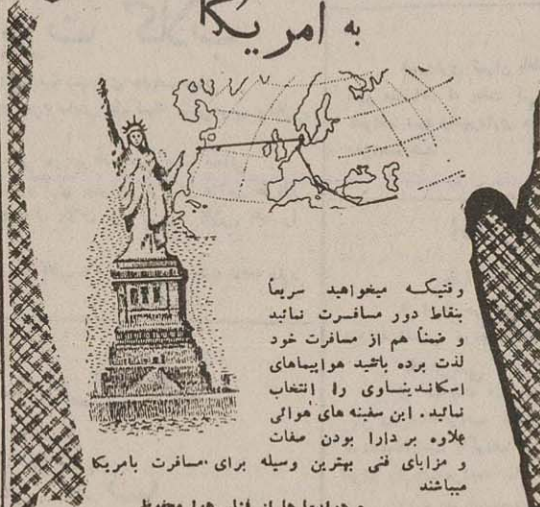 به امریکا
وقتیکه میخواهید سریعاً
بنقاط دور مسافرت نمائید
و ضمناً هم از مسافرت خود
لذت برده باشید هواپیماهای
اسکاندیناوی را انتخاب
نمائید. این سفینه های هوائی
علاوه بر دارا بودن صفات
و مزایای فنی بهترین وسیله برای مسافرت بامریکا
میباشند